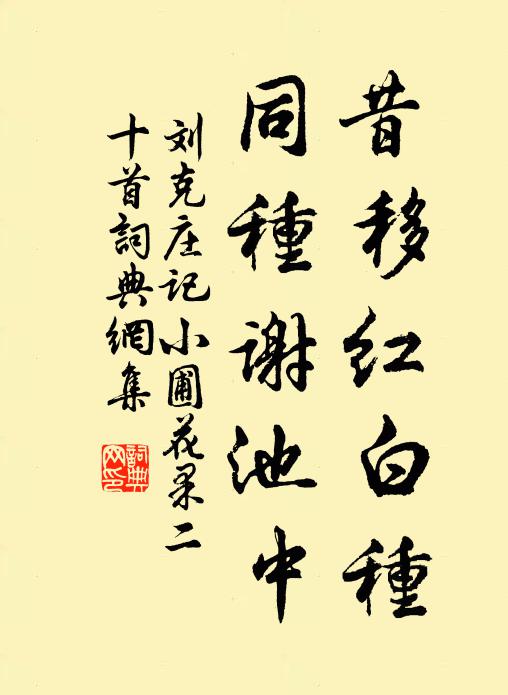 昔移红白種
同種谢池中
刘克庄记小圃花果二
十首詞典網集
詞典
网印